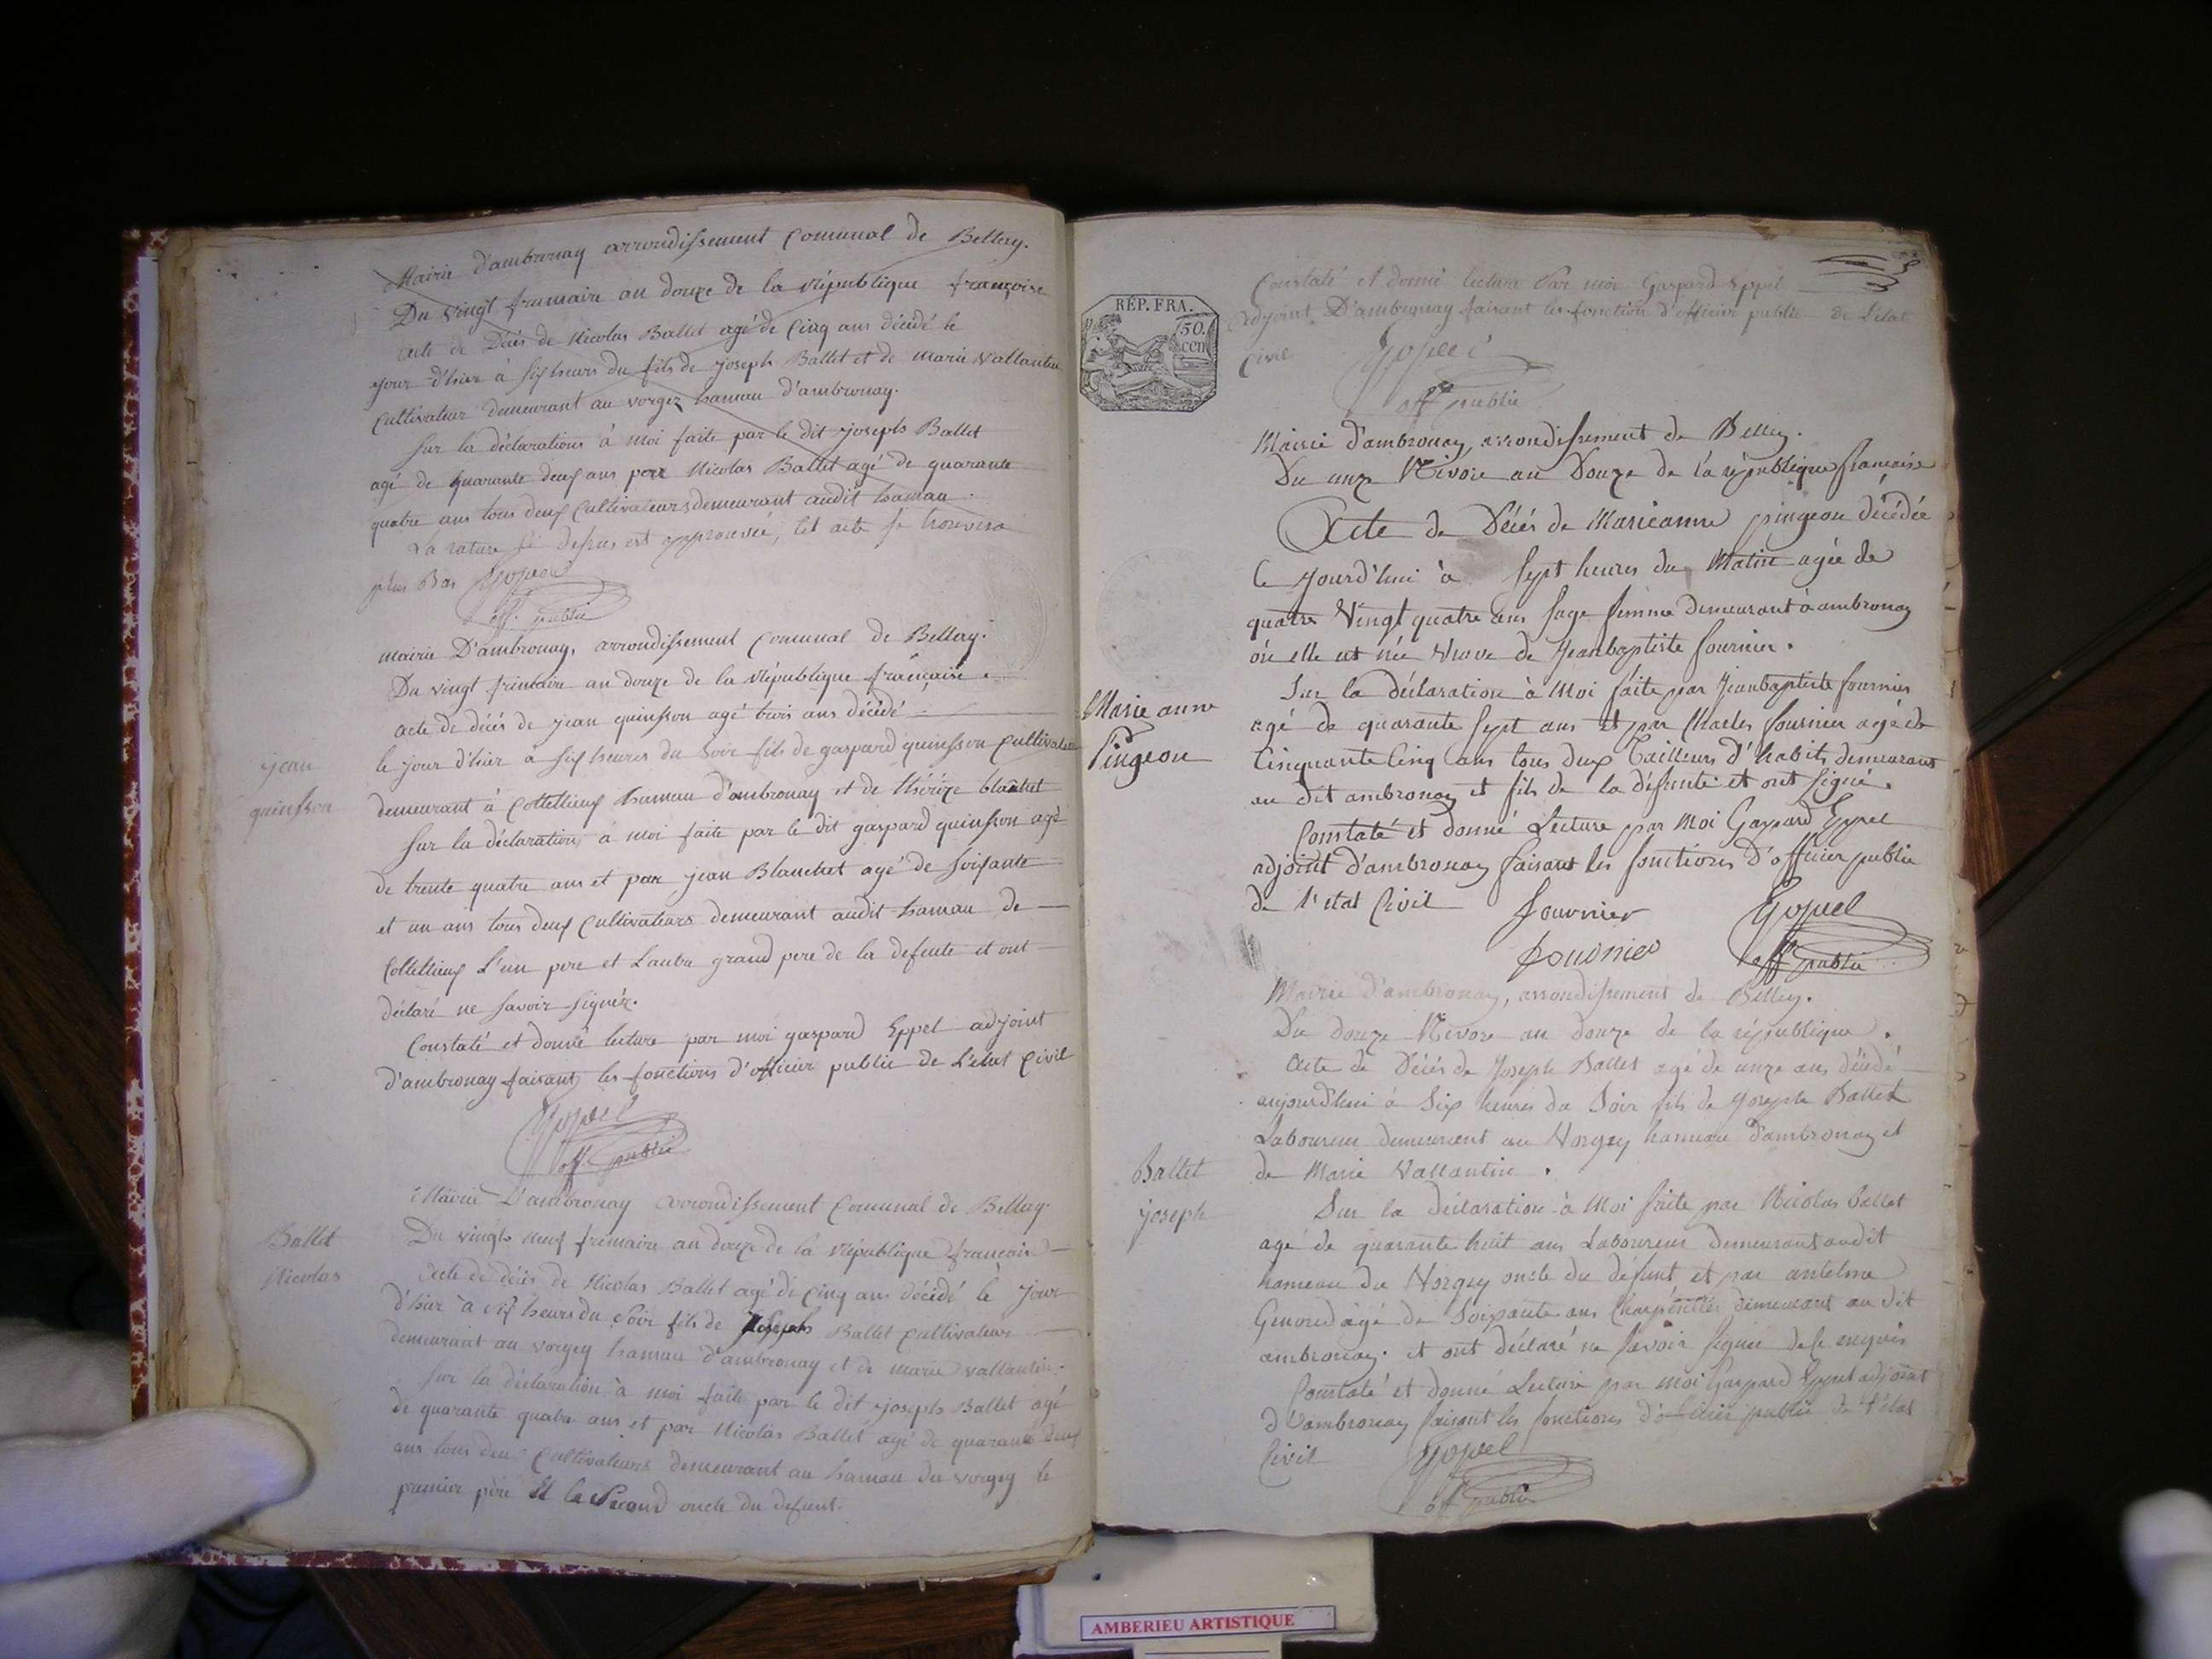 Mairie d'ambronay arrondissement Comunal de Bellay.
Du vingt frimaire an douze de la République françoise
acte de Décès de Nicolas Ballet agé de Cinq ans décédé le
jour d'hier à six heures du fils de joseph Ballet et de marie vallantin
Cultivateur demeurant au vorgey hamau d'ambronay.
Sur la déclarations à moi faite par le dit joseph Ballet
agé de quarante deux ans par Nicolas Ballet agé de quarante
quatre ans tous deux Cultivateurs demeurant audit hamau.
La rature ci dessus est approuvée, tel acte se trouvera
plus Bas Eppel
off. public
mairie D'ambronay, arrondissement Comunal de Bellay.
Du vingt frimaire an douze de la République française.
acte de décès de jean quinsson agé trois ans décédé
jean
quinsson
le jour d'hier à six heures du soir fils de gaspard quinsson Cultivateur
demeurant à Cottelieux hamau d'ambronay et de thérèze blanchet
Sur la déclaration à moi faite par le dit gaspard quinsson agé
de trente quatre ans et par jean Blanchet agé de soixante
et un ans tous deux Cultivateurs demeurant audit hamau de
L'un pere et L'autre grand pere de la defunte et ont
déclaré ne savoir signér.
Constaté et donné lecture par moi gaspard Eppel adjoint
d'ambronay faisant les fonctions d'officier public de L'état Civil
Eppel
off. public
Mairie D'ambronay arrondissement Comunal de Bellay.
Ballet
Nicolas
Du vingt neuf frimaire an douze de la République françoise
acte de décès de Nicolas Ballet agé de Cinq ans décédé le jour
d'hier à six heurs du soir fils de Joseph Ballet Cultivateur
demeurant au vorgey hamau d'ambronay et de marie vallantin.
Sur la déclaration à moi faite par le dit joseph Ballet agé
de quarante quatre ans et par Nicolas Ballet agé de quarante deux
ans tous deux Cultivateurs demeurant au hamau du vorgey le
premier père et le Second oncle du defunt.
RÉP. FRA.
50.
cen
Constaté et donné lecture Par moi Gaspard Eppel
adjoint D'ambronay faisant les fonction d'officier public de L'état
Civil Eppel
off public
Mairie d'ambronay, arrondissement de Belley.
Du onze Nivose an Douze de la république française
Acte de Décés de Marieanne pingeon décédée
le jourd'hui à Sept heures du Matin agée de
quatre Vingt quatre ans sage femme demeurant à ambronay
où elle est née veuve de Jeanbaptiste fournier.
Marie anne
Pingeon
Sur la déclaration à Moi faite par Jeanbaptiste fournier
agé de quarante Sept ans et par Charles fournier agé de
Cinquante Cinq ans tous deux Tailleurs d'habits demeurant
au dit ambronay et fils de la défunte et ont signé.
Constaté et donné Lecture par Moi Gaspard Eppel
adjoint d'ambronay faisant les fonctions d'officier public
de l'état Civil fournier Eppel
fournier off public
Mairie d'ambronay, arrondissement de Belley.
Du douze Nivose an douze de la république.
Acte de Décés de Joseph Ballet agé de onze ans décédé
aujourd'hui à Six heures du Soir fils de Joseph Ballet
Laboureur demeurant au Vorgey hameau d'ambronay et
de Marie Vallantin.
Ballet
joseph
Sur la déclaration à Moi faite par Nicolas Ballet
agé de quarante huit ans Laboureur demeurant audit
hameau du Vorgey oncle du défunt, et par antelme
agé de Soixante ans Charpentier demeurant au dit
ambronay. et ont déclaré ne savoir signer de ce enquis
Constaté et donné Lecture par moi Gaspard Eppel adjoint
d'ambronay faisant les fonctions d'officier public de l'état
Civil Eppel
off public
AMBERIEU ARTISTIQUE